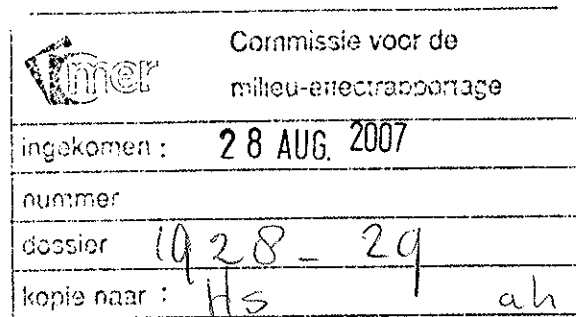 mer
Commissie voor de
milieu-effectrapportage
ingekomen : 28 AUG. 2007
nummer
dossier 1928 - 29
kopie naar : Hs ah